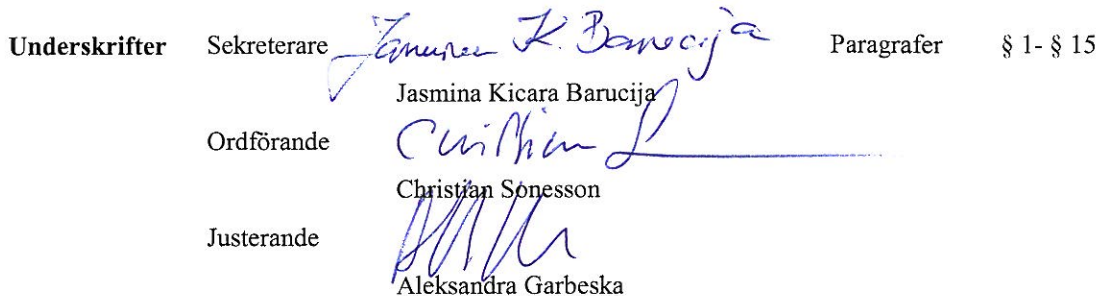 Underskrifter Sekreterare Jasmina K. Barucija Paragrafer § 1- § 15
Jasmina Kicara Barucija
Ordförande Christian S
Christian Sonesson
Justerande
Aleksandra Garbeska